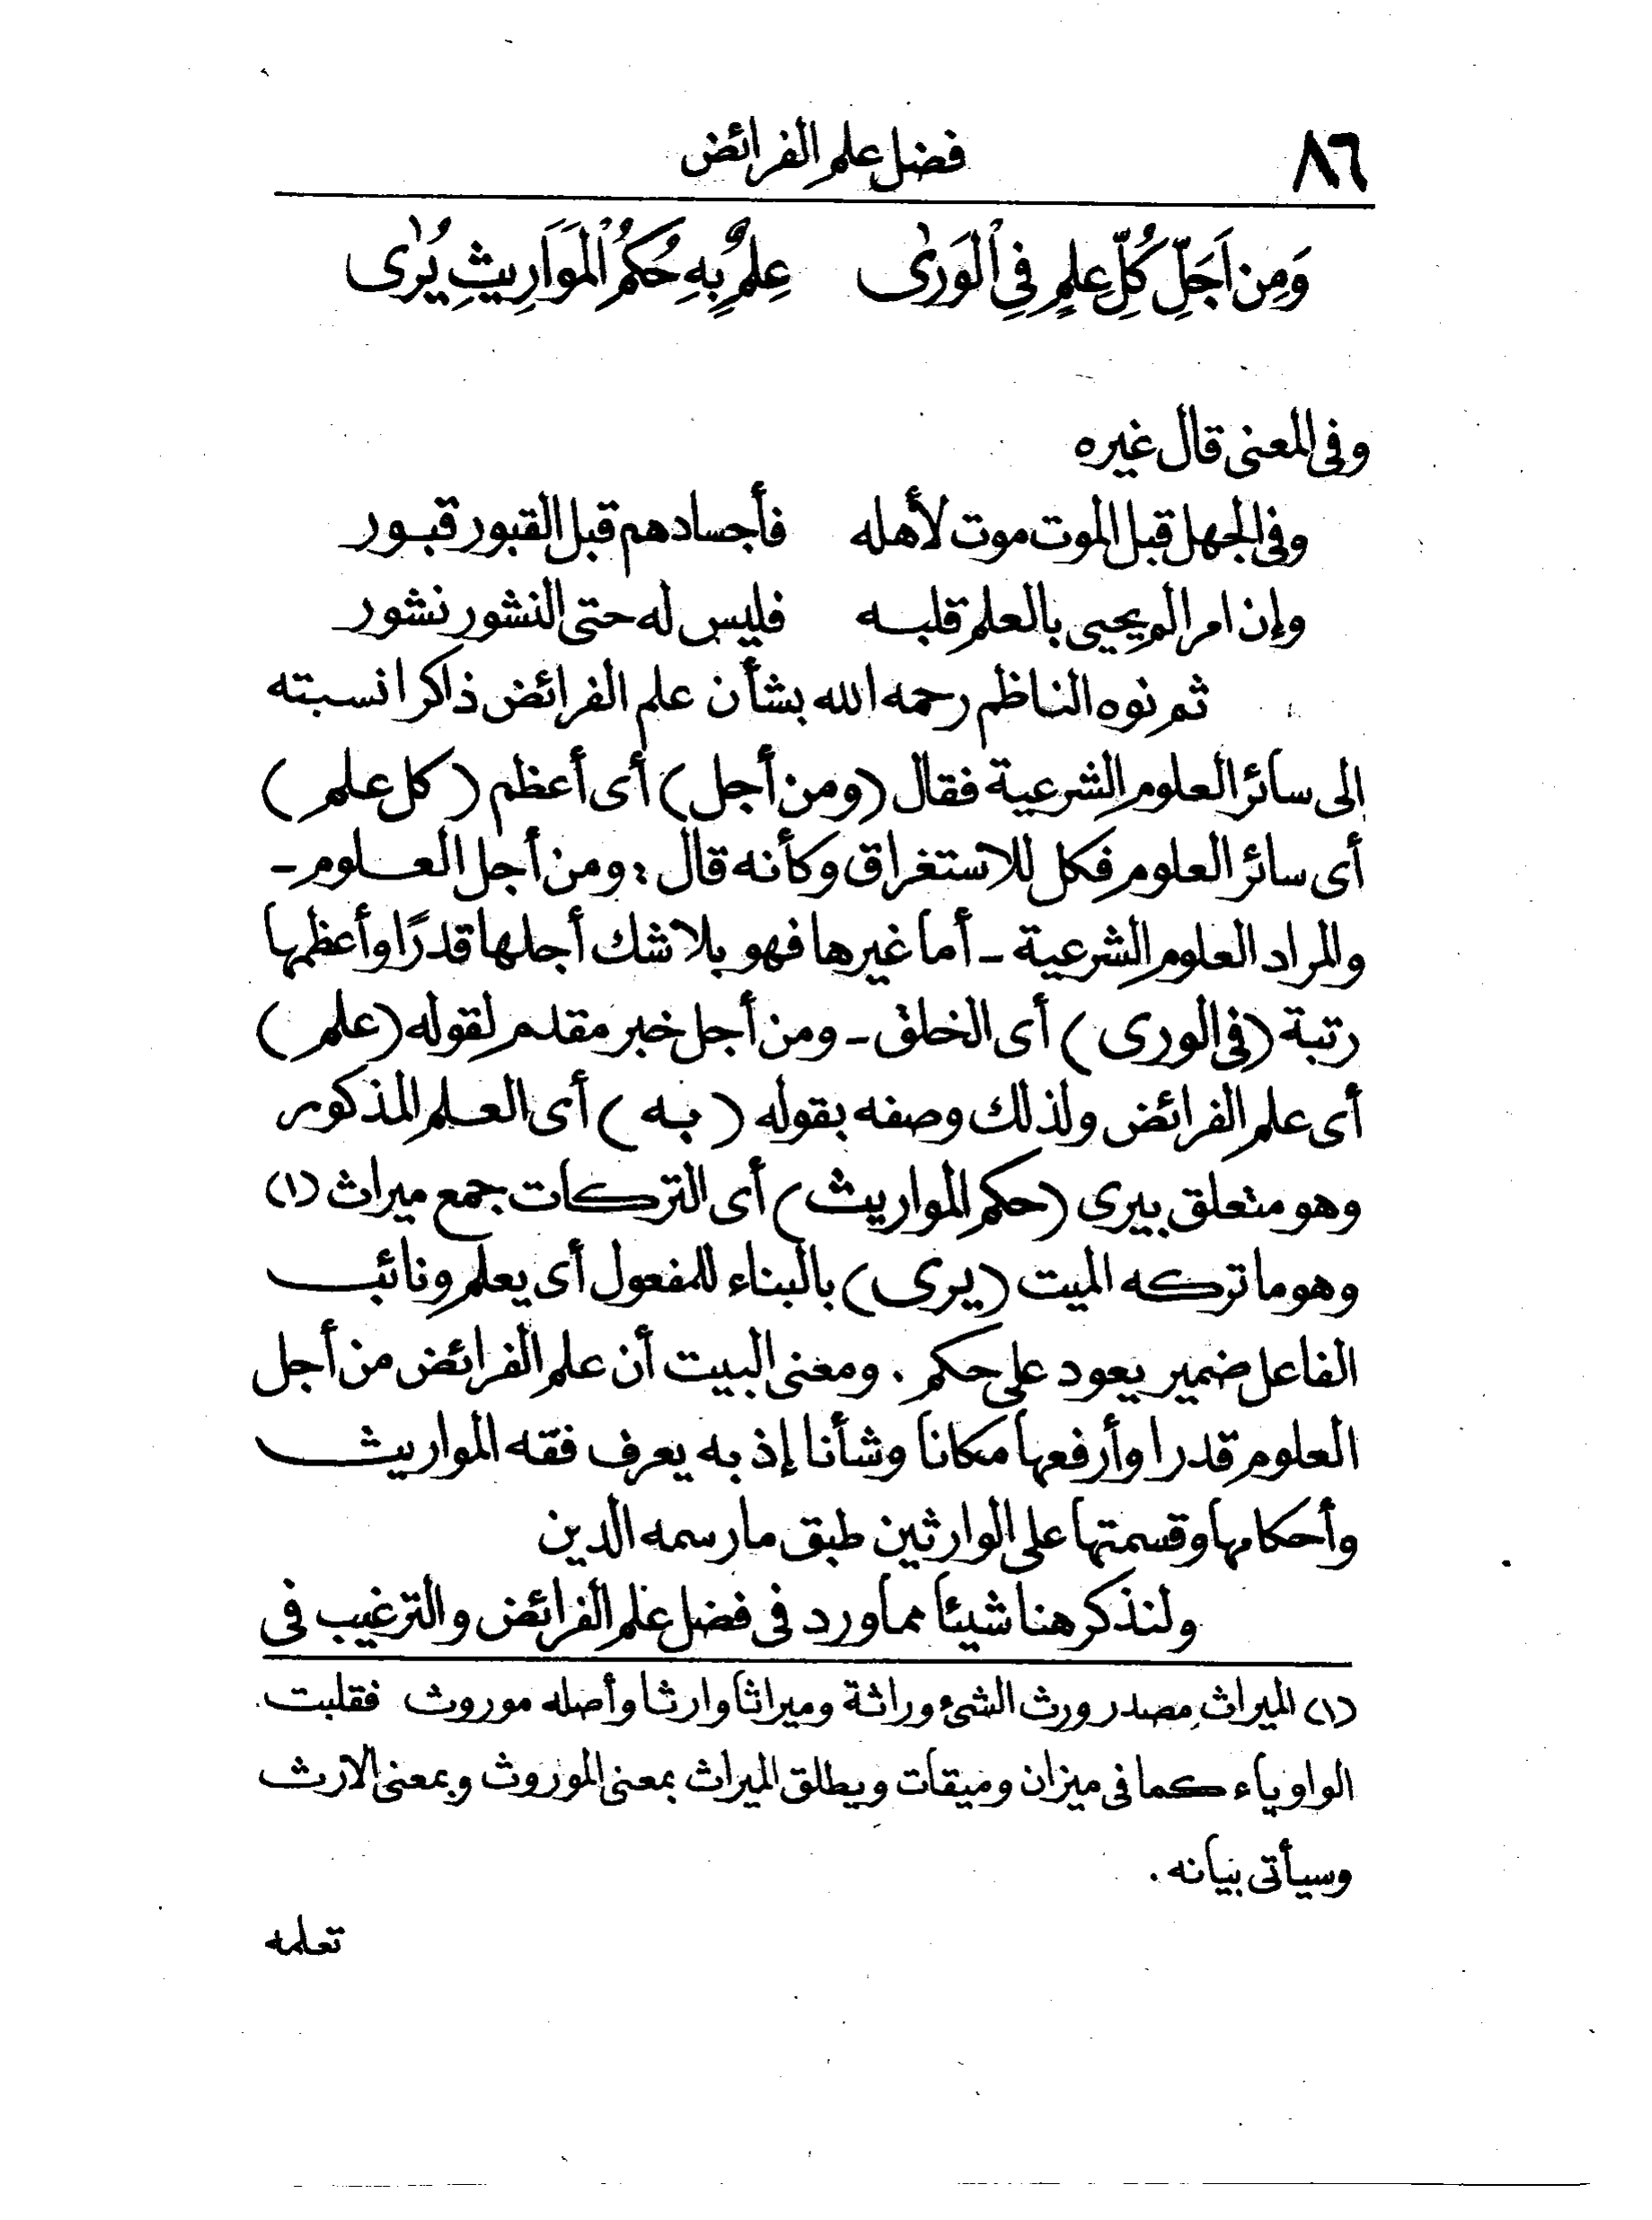 ٨٦ فضل علم الفرائض
وَمِن اَجَلِّ كُلِّ عِلمٍ فِى ٱلوَرٰى عِلمٌ بِهِ حُكمُ ٱلمَوَارِيثِ يُرٰى
وفى المعنى قال غيره
وفى الجهل قبل الموت موت لأهله فأجسادهم قبل القبور قبـور
وإن امرا لم يحيى بالعلم قلبـه فليس له حتى النشور نشور
ثم نوه الناظم رحمه الله بشأن علم الفرائض ذاكرا نسبته
إلى سائر العلوم الشرعية فقال (ومن أجل) أى أعظم (كل علم)
أى سائر العلوم فكل للاستغراق وكأنه قال : ومن أجل العـلوم -
والمراد العلوم الشرعية - أما غيرها فهو بلا شك أجلها قدرًا وأعظمها
رتبة (فى الورى) أى الخلق - ومن أجل خبر مقدم لقوله (علم)
أى علم الفرائض ولذلك وصفه بقوله (بـه) أى العـلم المذكور
وهو متعلق بيرى (حكم المواريث) أى التركات جمع ميراث (١)
وهو ما تركه الميت (يرى) بالبناء للمفعول أى يعلم ونائب
الفاعل ضمير يعود على حكم . ومعنى البيت أن علم الفرائض من أجل
العلوم قدرا وأرفعها مكانا وشأنا إذ به يعرف فقه المواريث
وأحكامها وقسمتها على الوارثين طبق ما رسمه الدين
ولنذكر هنا شيئا مما ورد فى فضل علم الفرائض والترغيب فى
(١) الميراث مصدر ورث الشئ وراثة وميراثا وارثا وأصله موروث فقلبت
الواو ياء كما فى ميزان وميقات ويطلق الميراث بمعنى الموروث وبمعنى الارث
وسيأتى بيانه .
تعلمه